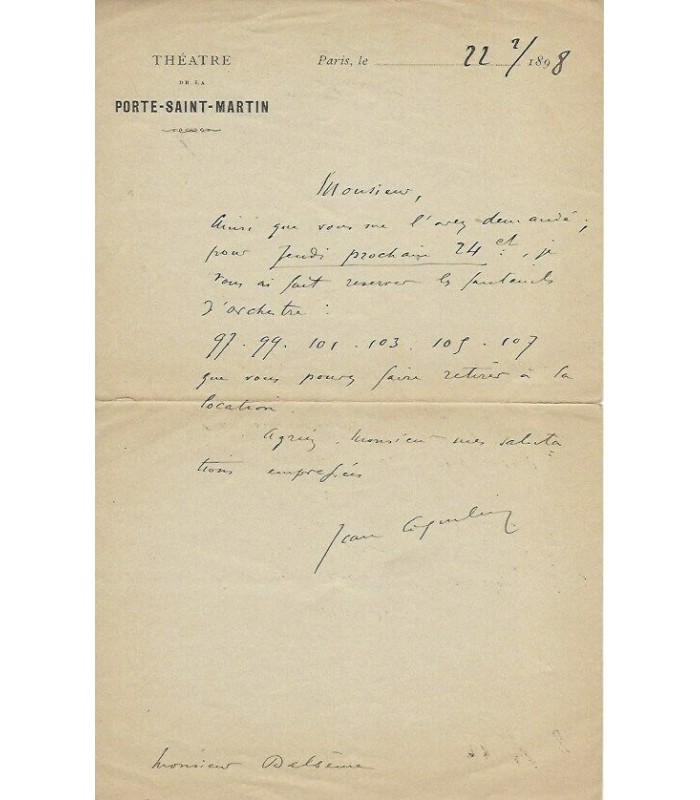 THÉATRE
DE LA
PORTE-SAINT-MARTIN
Paris, le 22 2/ 1898
Monsieur,
Ainsi que vous me l'avez demandé,
pour Jeudi prochain 24 ct, je
vous ai fait reserver les fauteuils
d'orchestre :
97. 99. 101. 103. 105. 107
que vous pouvez faire retirer à la
location.
Agréez, Monsieur mes saluta
tions empressées
Jean Coquelin
Monsieur Dalsème